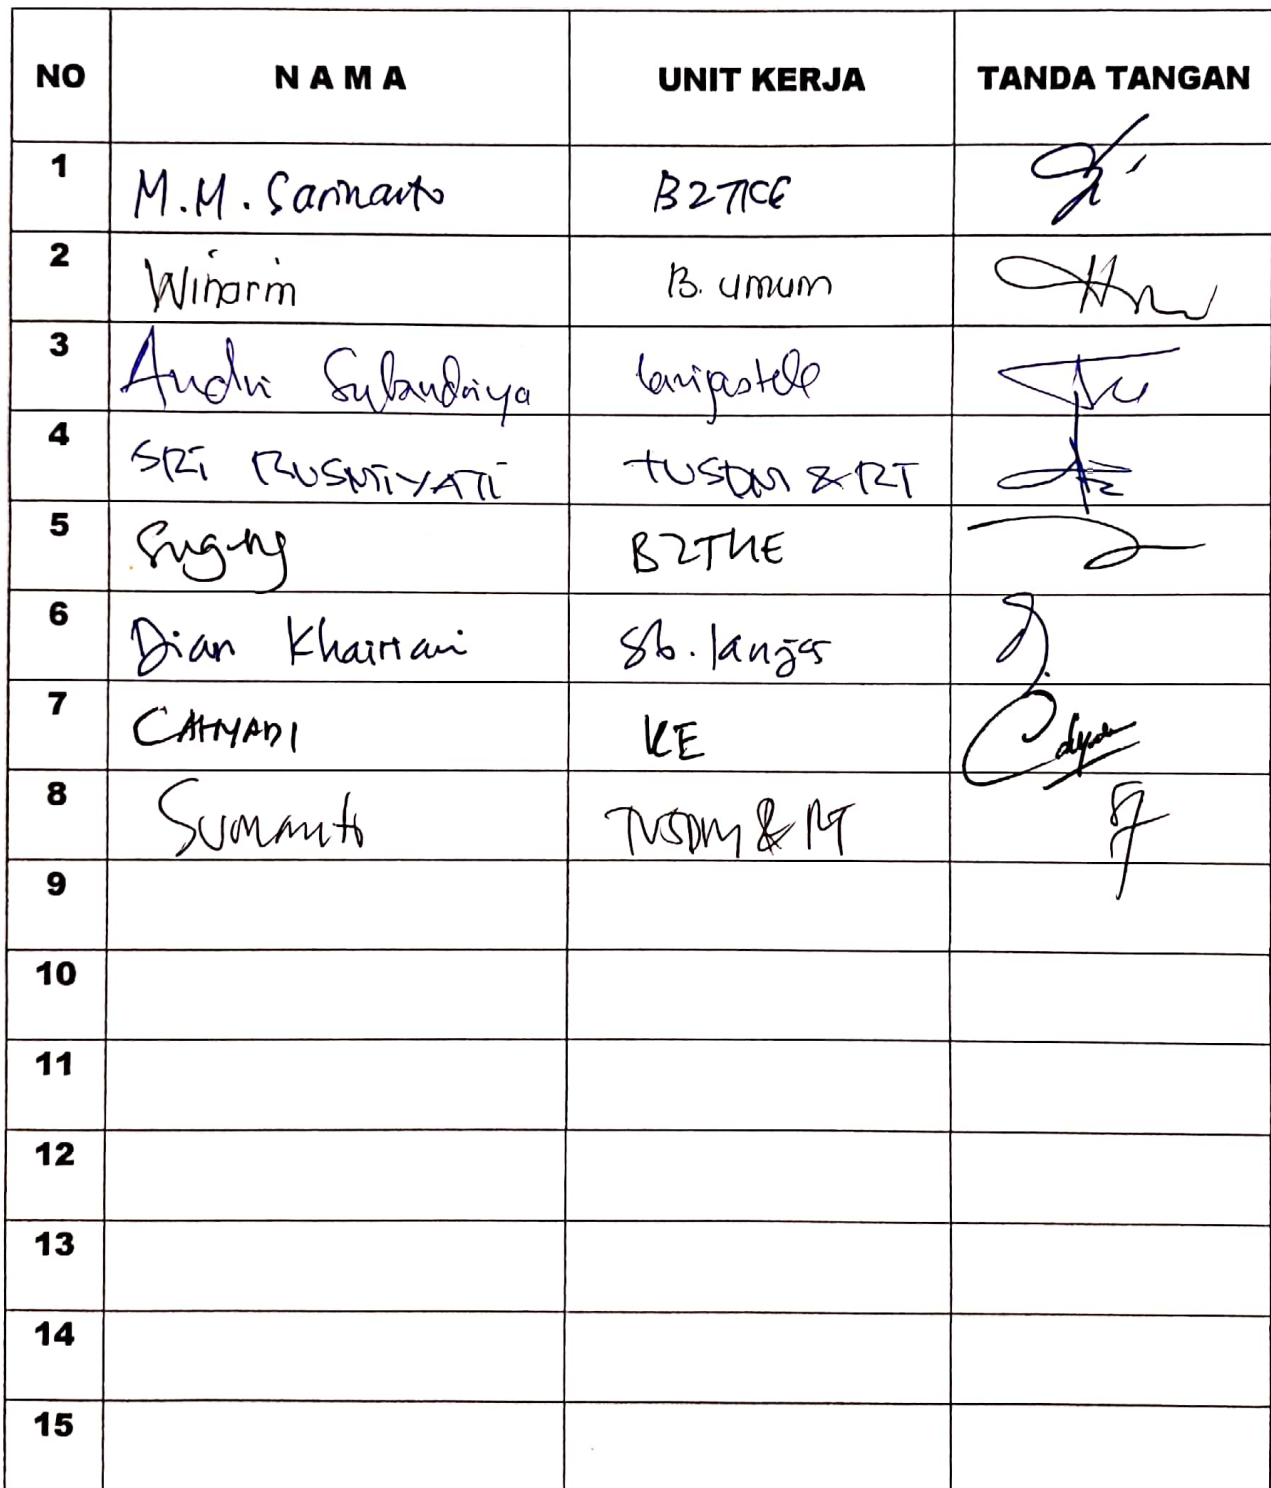 NO N A M A UNIT KERJA TANDA TANGAN
1 M.M. Sarinanto B2TKE
2 Winarni B. umum
3 Andri Subandriya
4 SRI RUSMIYATI TUSDM & RT
5 Sugeng B2TKE
6 Dian Khairiani
7 CAHYADI KE
8 Sumanto TUSDM & RT
9
10
11
12
13
14
15